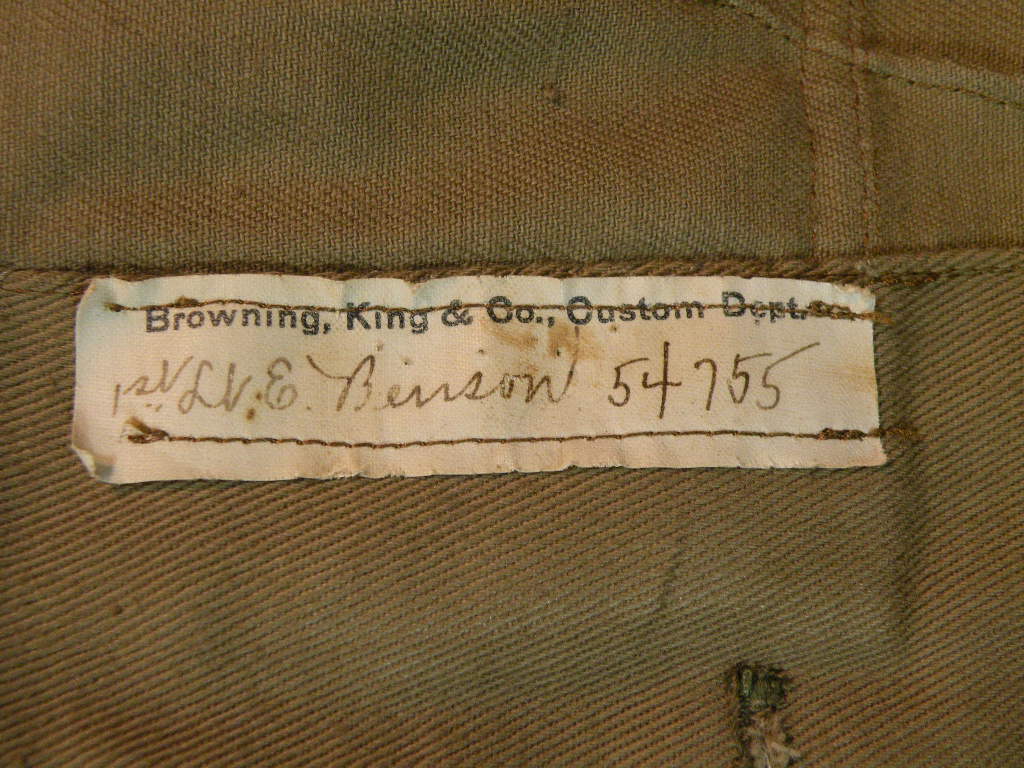 Browning, King & Co., Custom Dept.
1st Lt. E. Benson 54755